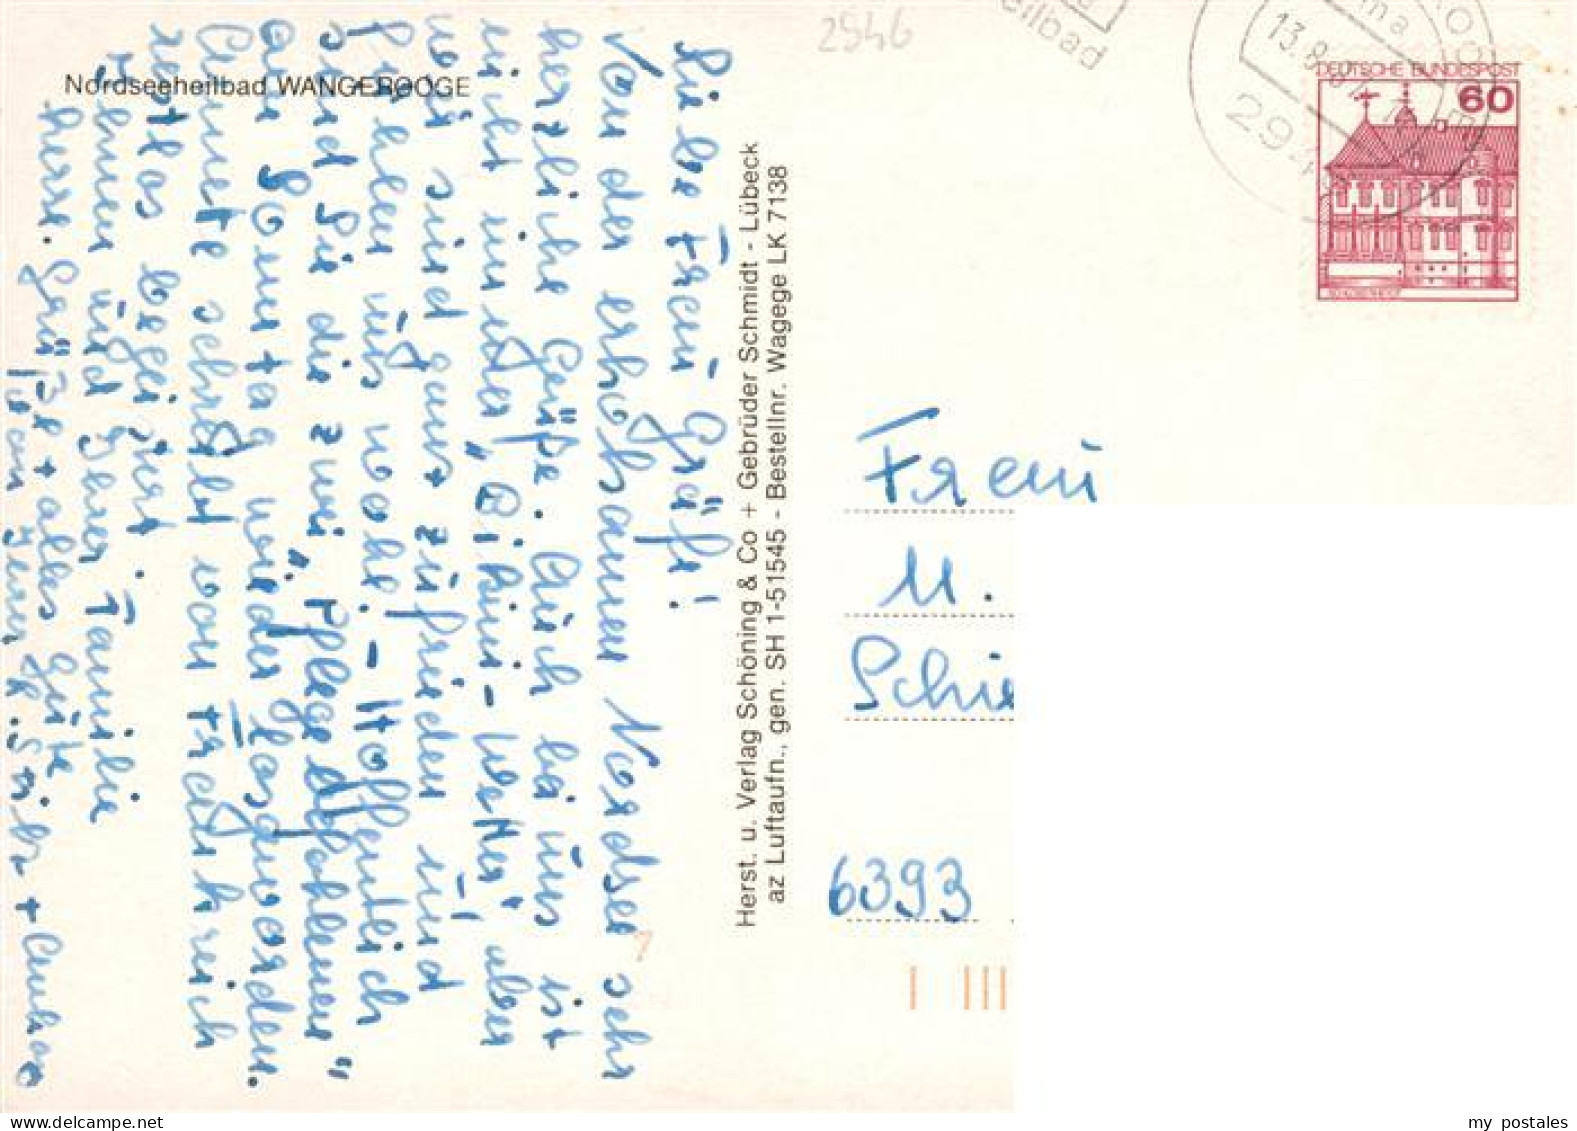 2946
Nordseeheilbad WANGEROOGE
eilbad
13.8.
294
DEUTSCHE BUNDESPOST
60
Liebe Frau Gräfe!
Von der erholsamen Nordsee sehr
herzliche Grüße. Auch bei uns ist
nicht immer „Bikini-Wetter", aber
wir sind ganz zufrieden und
fühlen uns wohl. - Hoffentlich
sind Sie die zwei „Pflegebefohlenen"
am Sonntag wieder losgeworden.
Anneke schreibt von Frankreich
restlos begeistert.
Ihnen und Ihrer Familie
herzl. Grüße + alles Gute
von Ihrer
Herst. u. Verlag Schöning & Co + Gebrüder Schmidt - Lübeck
az Luftaufn., gen. SH 1-51545 - Bestellnr. Wagege LK 7138
Frau
M.
Schie
6393
my postales